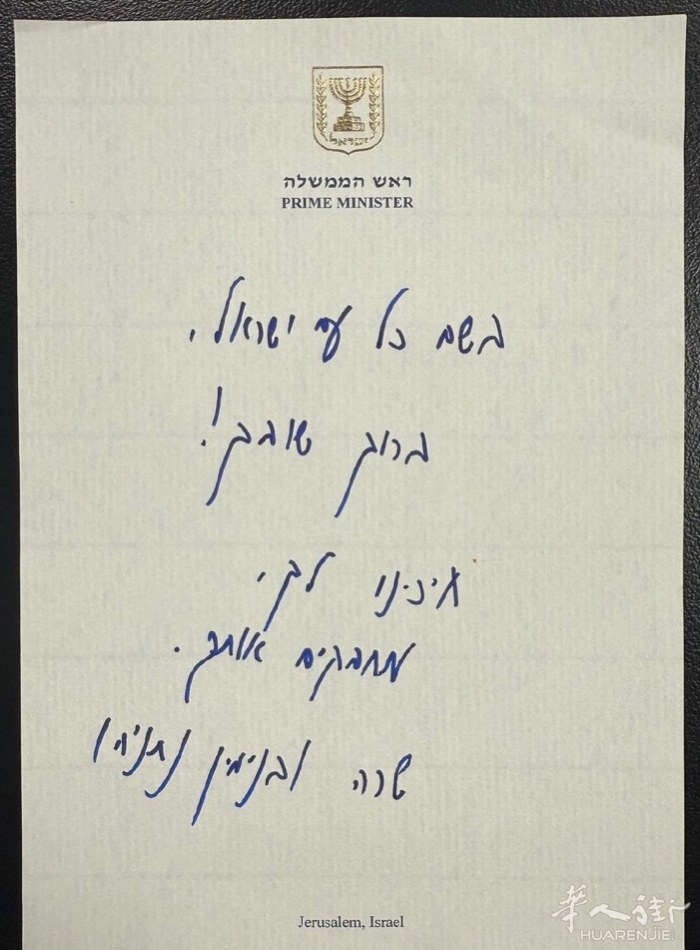 ישראל
ראש הממשלה
PRIME MINISTER
בשם כל עם ישראל,
ברוך שובך!
חיכינו לך,
מחבקים אותך.
שרה ובנימין נתניהו
Jerusalem, Israel
华人街
HUARENJIE